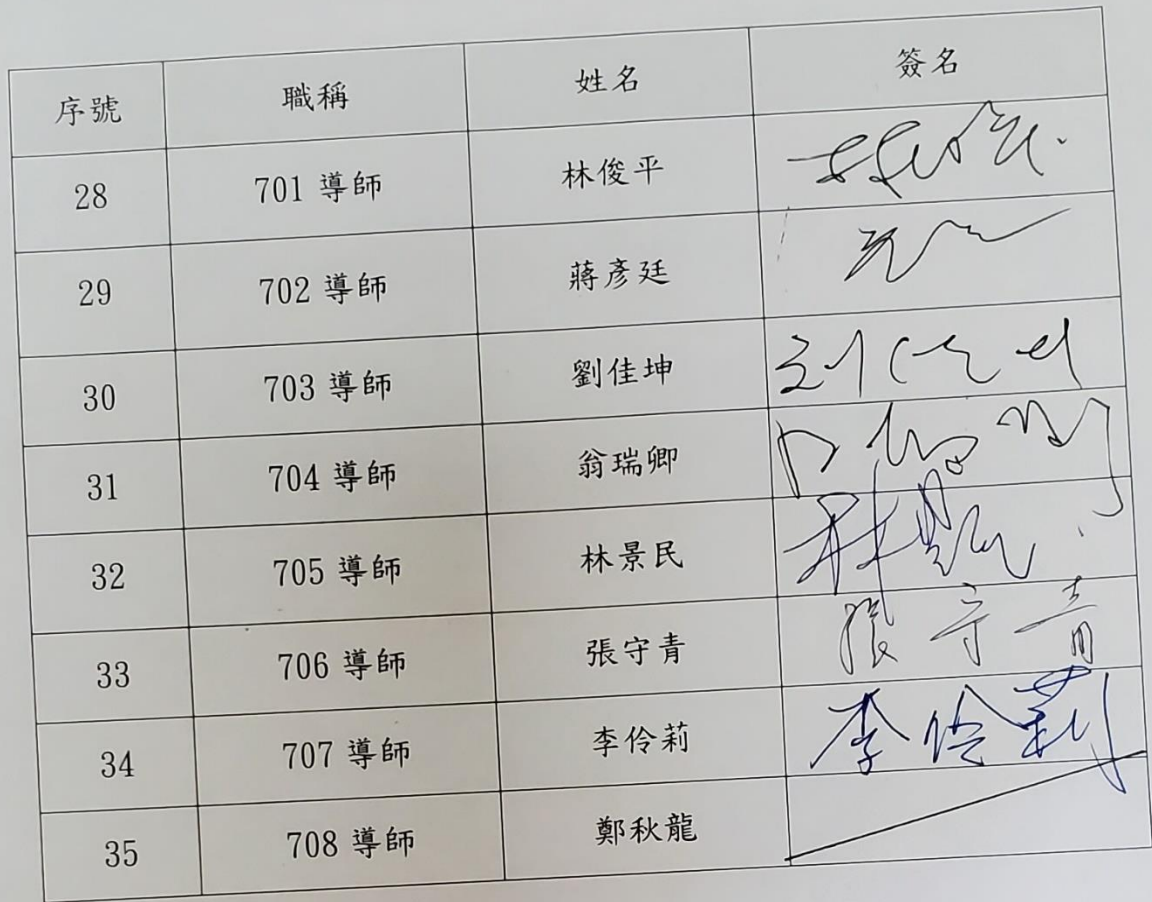 序號 職稱 姓名 簽名
28 701 導師 林俊平
29 702 導師 蔣彥廷
30 703 導師 劉佳坤
31 704 導師 翁瑞卿
32 705 導師 林景民
33 706 導師 張守青 張守青
34 707 導師 李伶莉 李伶莉
35 708 導師 鄭秋龍